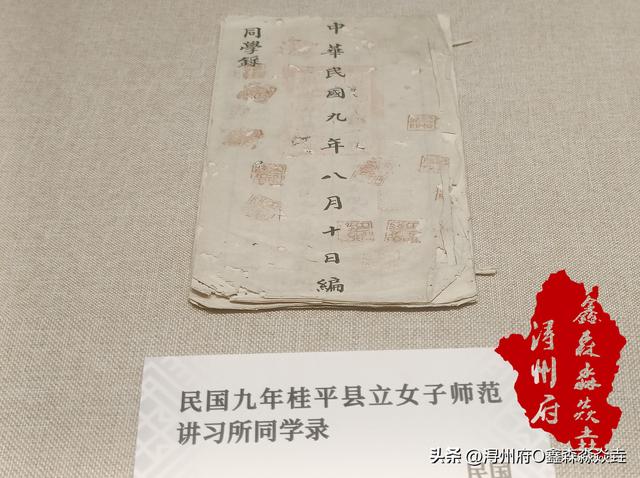 同學錄
中華民國九年八月十日編
民国九年桂平县立女子师范
讲习所同学录
民国
浔州府
鑫森淼焱垚
头条 @浔州府O鑫森淼焱垚